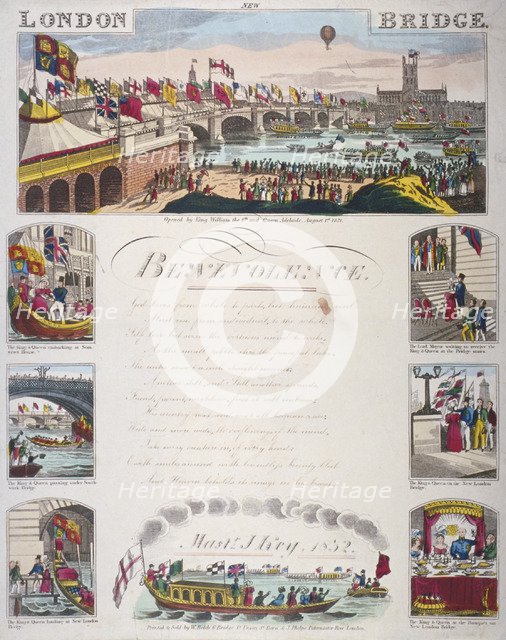 LONDON NEW BRIDGE.
Opened by King William the 4th and Queen Adelaide, August 1st 1831.
BENEVOLENCE.
God loves from whole to parts, but human soul
Must rise from individual to the whole.
Self love but serves the virtuous mind to wake,
As the small pebble stirs the peaceful lake;
The centre
Another still, and still another spreads,
Friend, parent, neighbour, first it will embrace,
His country next, and next all human race;
Wide and more wide, the o'erflowings of the mind,
Take every creature in, of every kind;
Earth smiles around, with boundless bounty blest,
And Heaven beholds its image in his breast.
The King & Queen embarking at Somerset House.
The King & Queen passing under Southwark Bridge.
The King & Queen landing at New London Bridge.
The Lord Mayor waiting to receive the King & Queen at the Bridge stairs.
The King & Queen on the New London Bridge.
The King & Queen at the Banquet on New London Bridge.
Mastr. J. Grey. 1832.
Printed & Sold by W. Belch 6 Bridge St Union St Boro & J. Phelps Paternoster Row London.
Heritage
Heritage
Heritage
Heritage
Heritage
Heritage